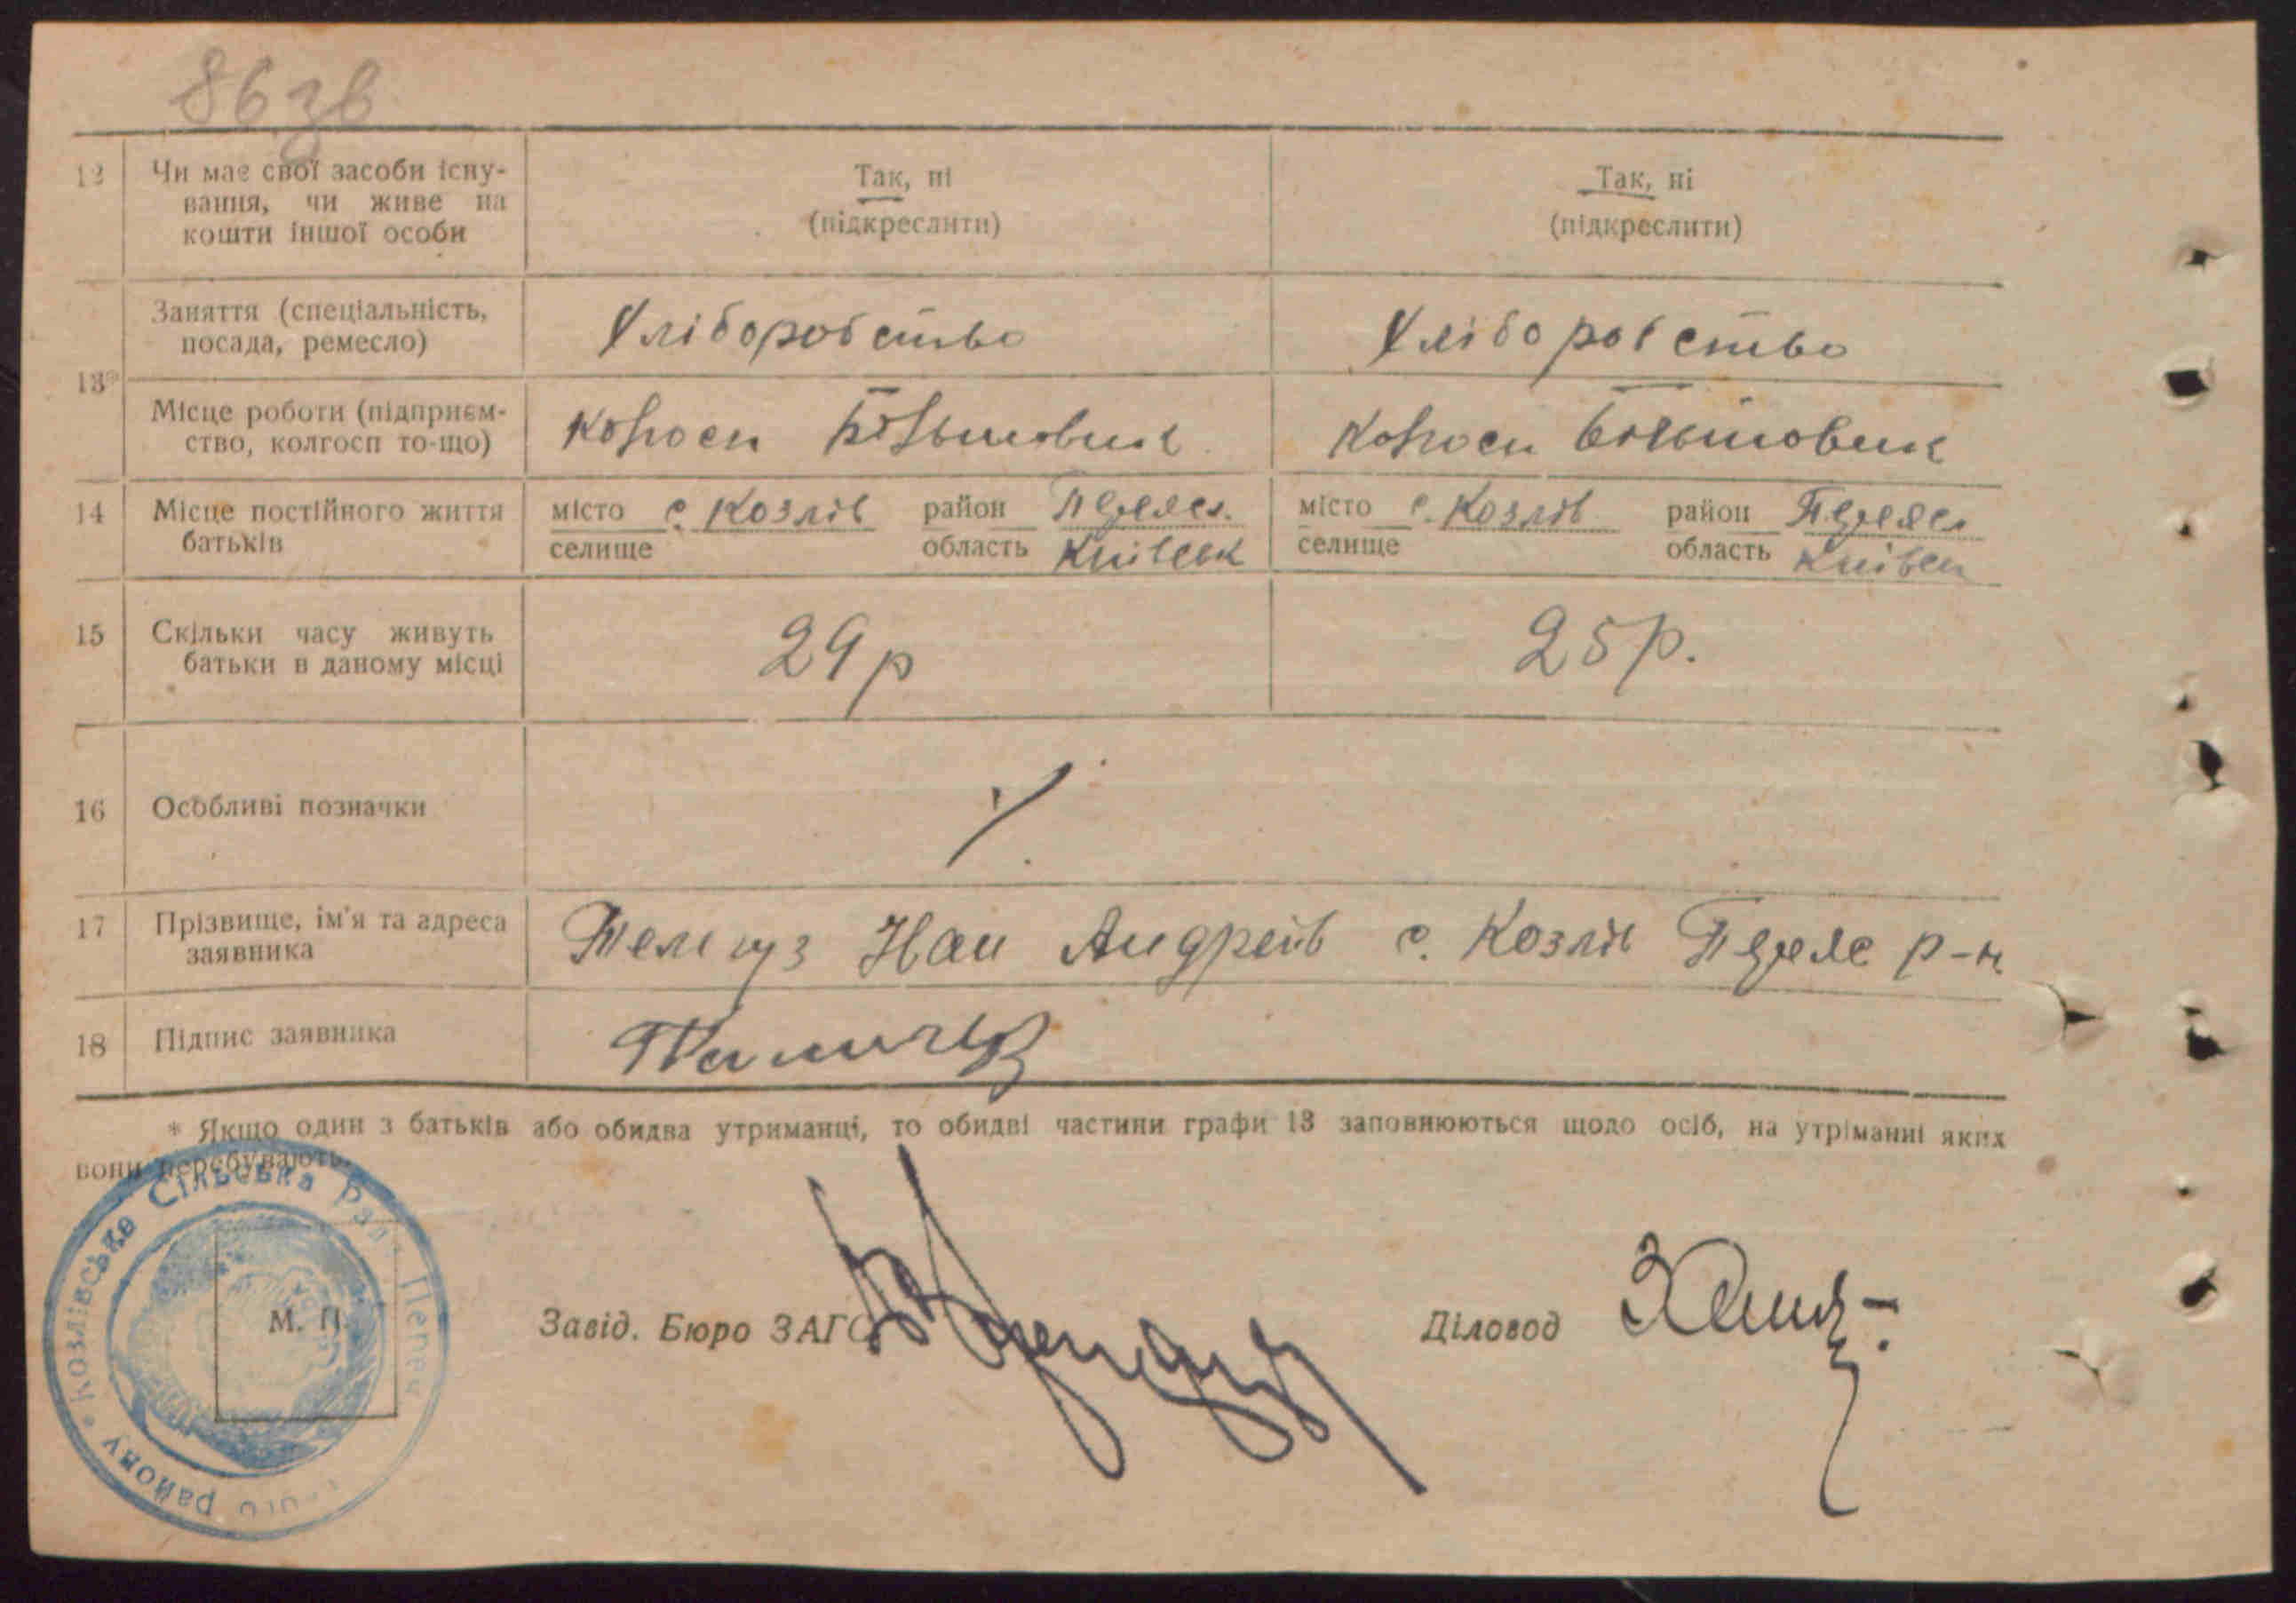 86зв
12 Чи має свої засоби існу-
вання, чи живе на
кошти іншої особи
Так, ні
(підкреслити)
Так, ні
(підкреслити)
13*
Заняття (спеціальність,
посада, ремесло)
Хліборобство
Хліборобство
Місце роботи (підприєм-
ство, колгосп то-що)
Більшовик
Більшовик
14 Місце постійного життя
батьків
місто с. Козлів район Переясл.
селище область Київськ
місто с. Козлів район Переясл
селище область Київськ
15 Скільки часу живуть
батьки в даному місці
29 р
25 р.
16 Особливі позначки
17 Прізвище, ім'я та адреса
заявника
Андреїв с. Козлів Переяс р-н
18 Підпис заявника
* Якщо один з батьків або обидва утриманці, то обидві частини графи 13 заповнюються щодо осіб, на утріманні яких
вони перебувають.
Козлівська Сільська Рада
району
М. П.
Завід. Бюро ЗАГС
Діловод